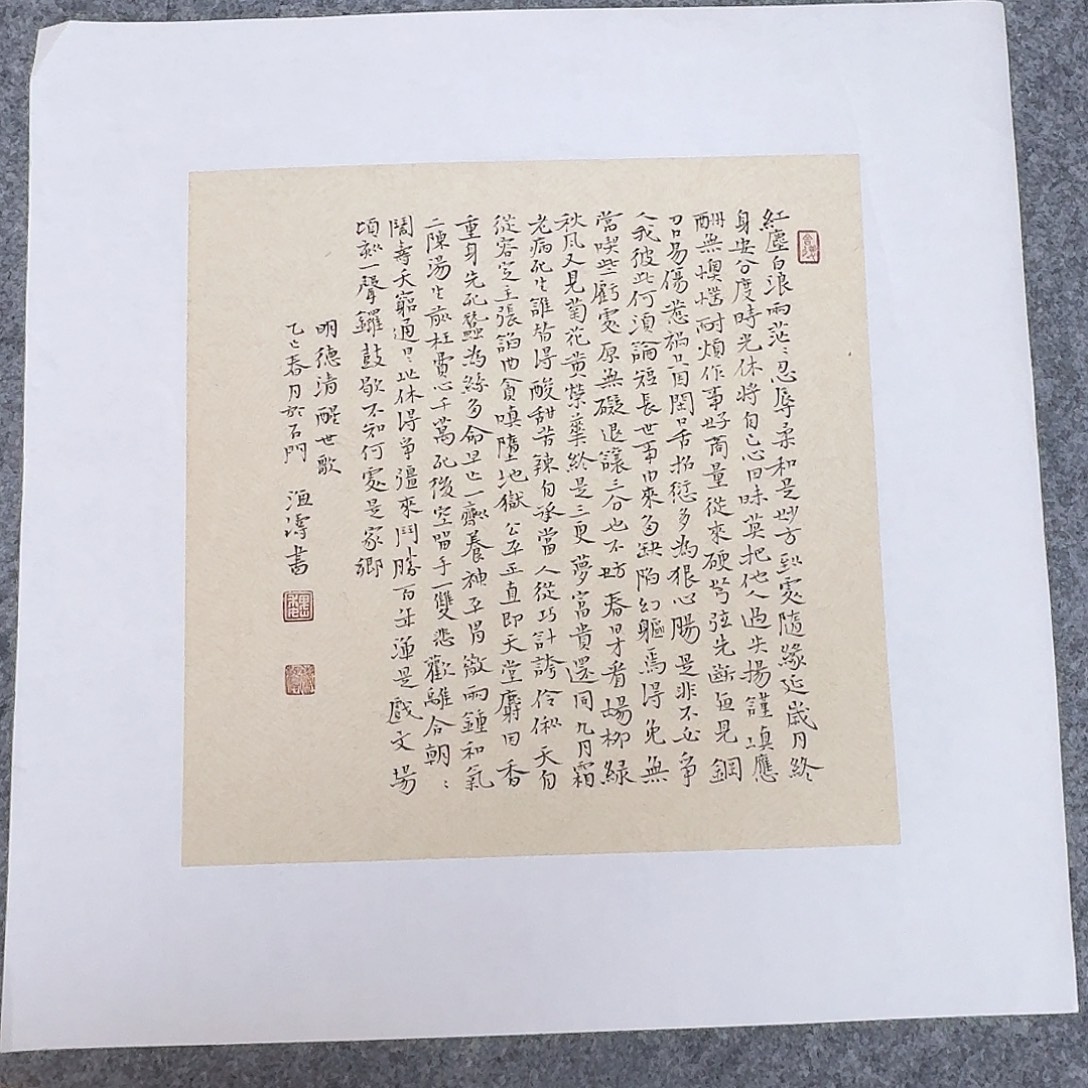 紅塵白浪兩茫〻忍辱柔和是妙方到處隨緣延歲月終
身安分度時光休將自己心田昧莫把他人過失揚謹慎應
酬無懊惱耐煩作事好商量從來硬弩弦先斷每見鋼
刀口易傷惹禍只因閑口舌招愆多為狠心腸是非不必爭
人我彼此何須論短長世事由來多缺陷幻軀焉得免無
常喫些虧處原無礙退讓三分也不妨春日才看楊柳綠
秋風又見菊花黃榮華終是三更夢富貴還同九月霜
老病死生誰替得酸甜苦辣自承當人從巧計誇伶俐天自
從容定主張諂曲貪嗔墮地獄公平正直即天堂麝因香
重身先死蠶為絲多命早亡一劑養神平胃散兩鍾和氣
二陳湯生前枉費心千萬死後空留手一雙悲歡離合朝〻
鬧壽夭窮通日〻忙休得爭彊來鬥勝百年渾是戲文場
頃刻一聲鑼鼓歇不知何處是家鄉
明德清醒世歌
乙巳春月於石門 濤書